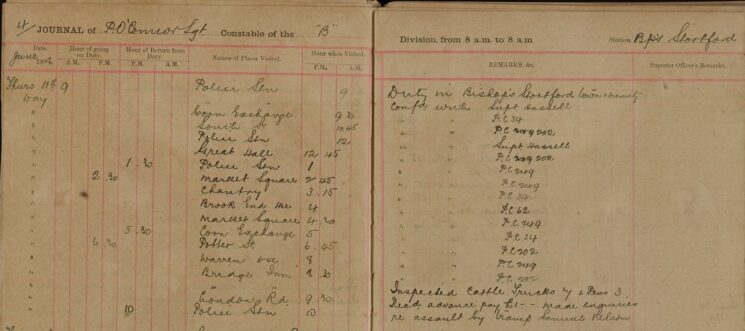 4/ JOURNAL of P. O'Connor Sgt Constable of the "B"
Date. Hour of going on Duty. Hour of Return from Duty Names of Places Visited. Hour when Visited.
June A.M. P.M. P.M. A.M. P.M. A.M.
Thurs 11th 9 Police Stn 9
Day
" Corn Exchange 9 30
" South St 10 45
" Police Stn 12
" Great Hall 12 45
" 1 . 30 Police Stn 1
" 2 . 30 Market Square 2 45
" Chantry 3 . 15
" Brook End 4
" Market Square 4 . 30
" 5 . 30 Corn Exchange 5
" 6 . 30 Potter St 6 . 45
" Warren 8
" Bridge Inn 8 . 30
" London Rd 9 . 30
" 10 Police Stn 10
Division, from 8 a.m. to 8 a.m Station Bps Stortford
REMARKS, &c. Superior Officer's Remarks.
Duty in Bishops Stortford town & vicinity
Conf'd with Supt Hassell
" " P.C 34
" " P.C 249 202
" " Supt Hassell
" " P.C 249 202
" " P.C 249
" " P.C 249
" " P.C 34
" " P.C 62
" " P.C 249
" " P.C 34
" " P.C 202
" " P.C 249
" " P.C 202
Inspected Cattle Trucks 4 & Pens 3
Recd advance pay £1 - - made enquiries
re assault by tramp Samuel Pelson